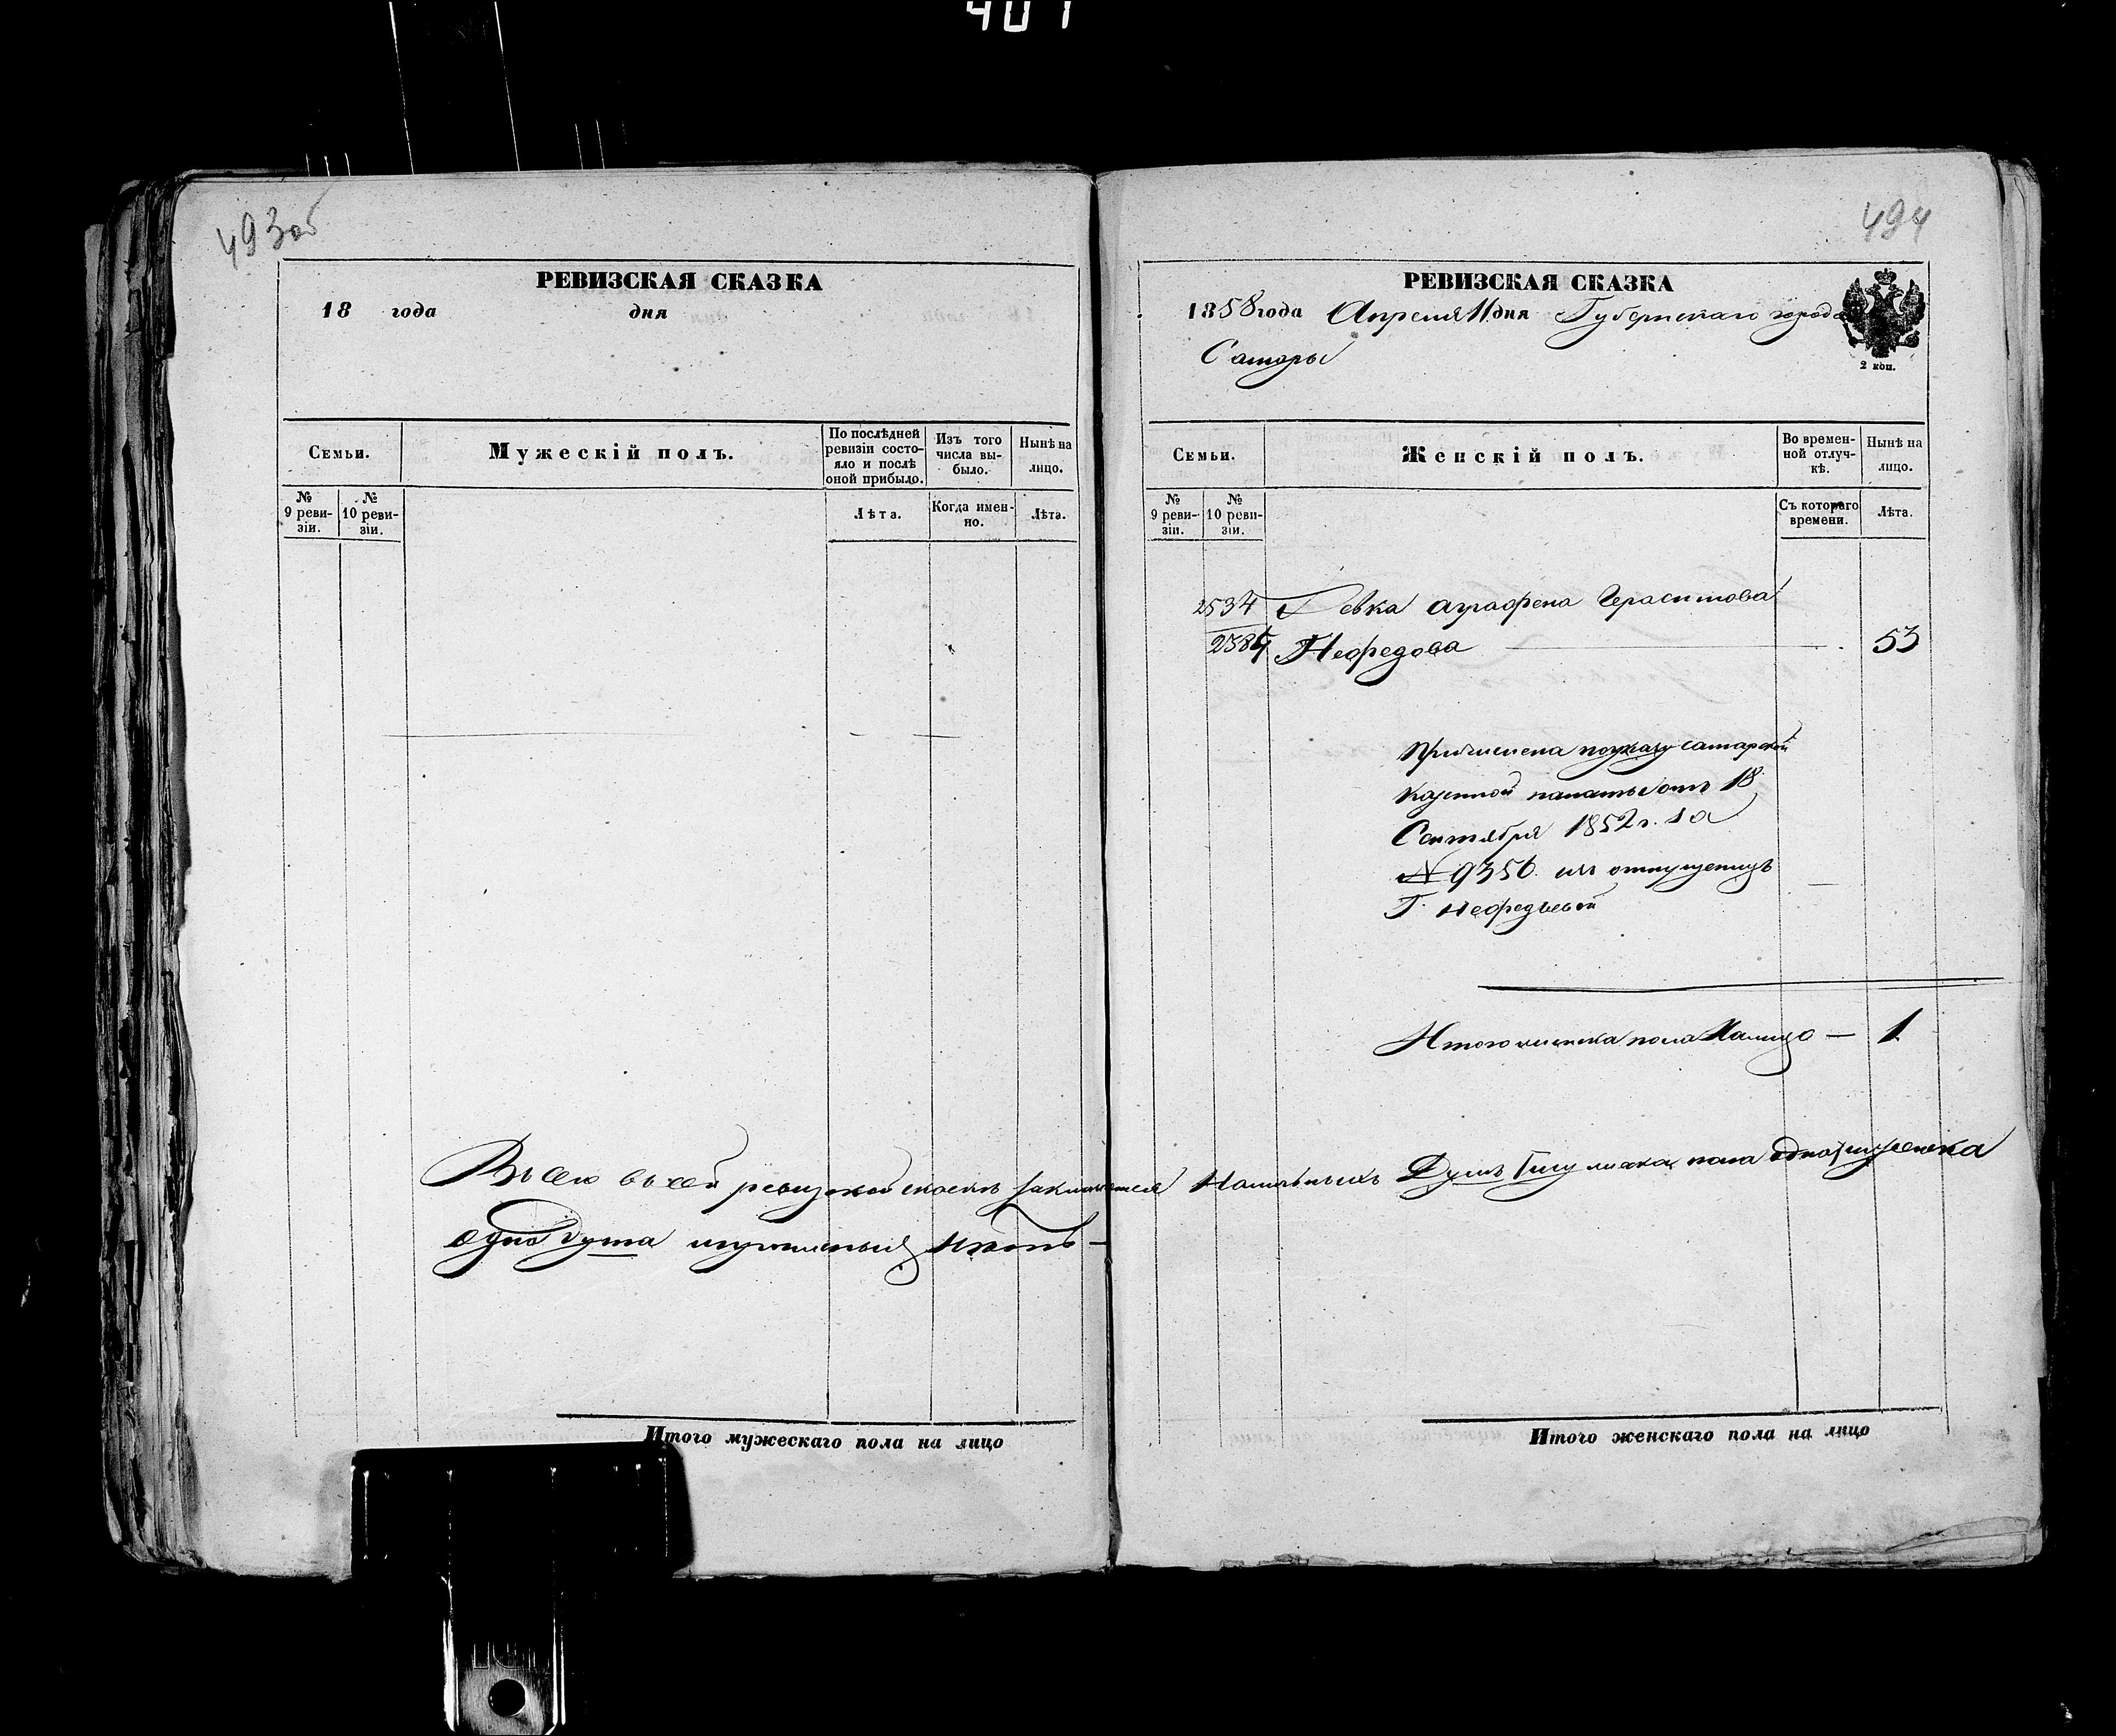 401
493об
РЕВИЗСКАЯ СКАЗКА
18 года дня
Семьи.
Мужескій полъ.
По послѣдней ревизіи состояло и послѣ оной прибыло.
Изъ того числа выбыло.
Нынѣ на лицо.
№ 9 ревизіи.
№ 10 ревизіи.
Лѣта.
Когда именно.
Лѣта.
Всего въ сей ревизской сказкѣ заключается Наличныхъ Душъ мужеска пола одна женска
одна душа
Итого мужескаго пола на лицо
494
РЕВИЗСКАЯ СКАЗКА
1858 года Апреля 11 дня Губернскаго города
Самары
2 коп.
Семьи.
Женскій полъ.
Во временной отлучкѣ.
Нынѣ на лицо.
№ 9 ревизіи.
№ 10 ревизіи.
Съ котораго времени.
Лѣта.
2534 Девка аграфена Герасимова
Нефедова 53
Причислена по указу самарской
казенной палаты отъ 18
Сентября 1852 г. за
№ 9356. изъ отпущеницъ
Г. Нефедьевой
Итого женска пола Налицо — 1
Итого женскаго пола на лицо